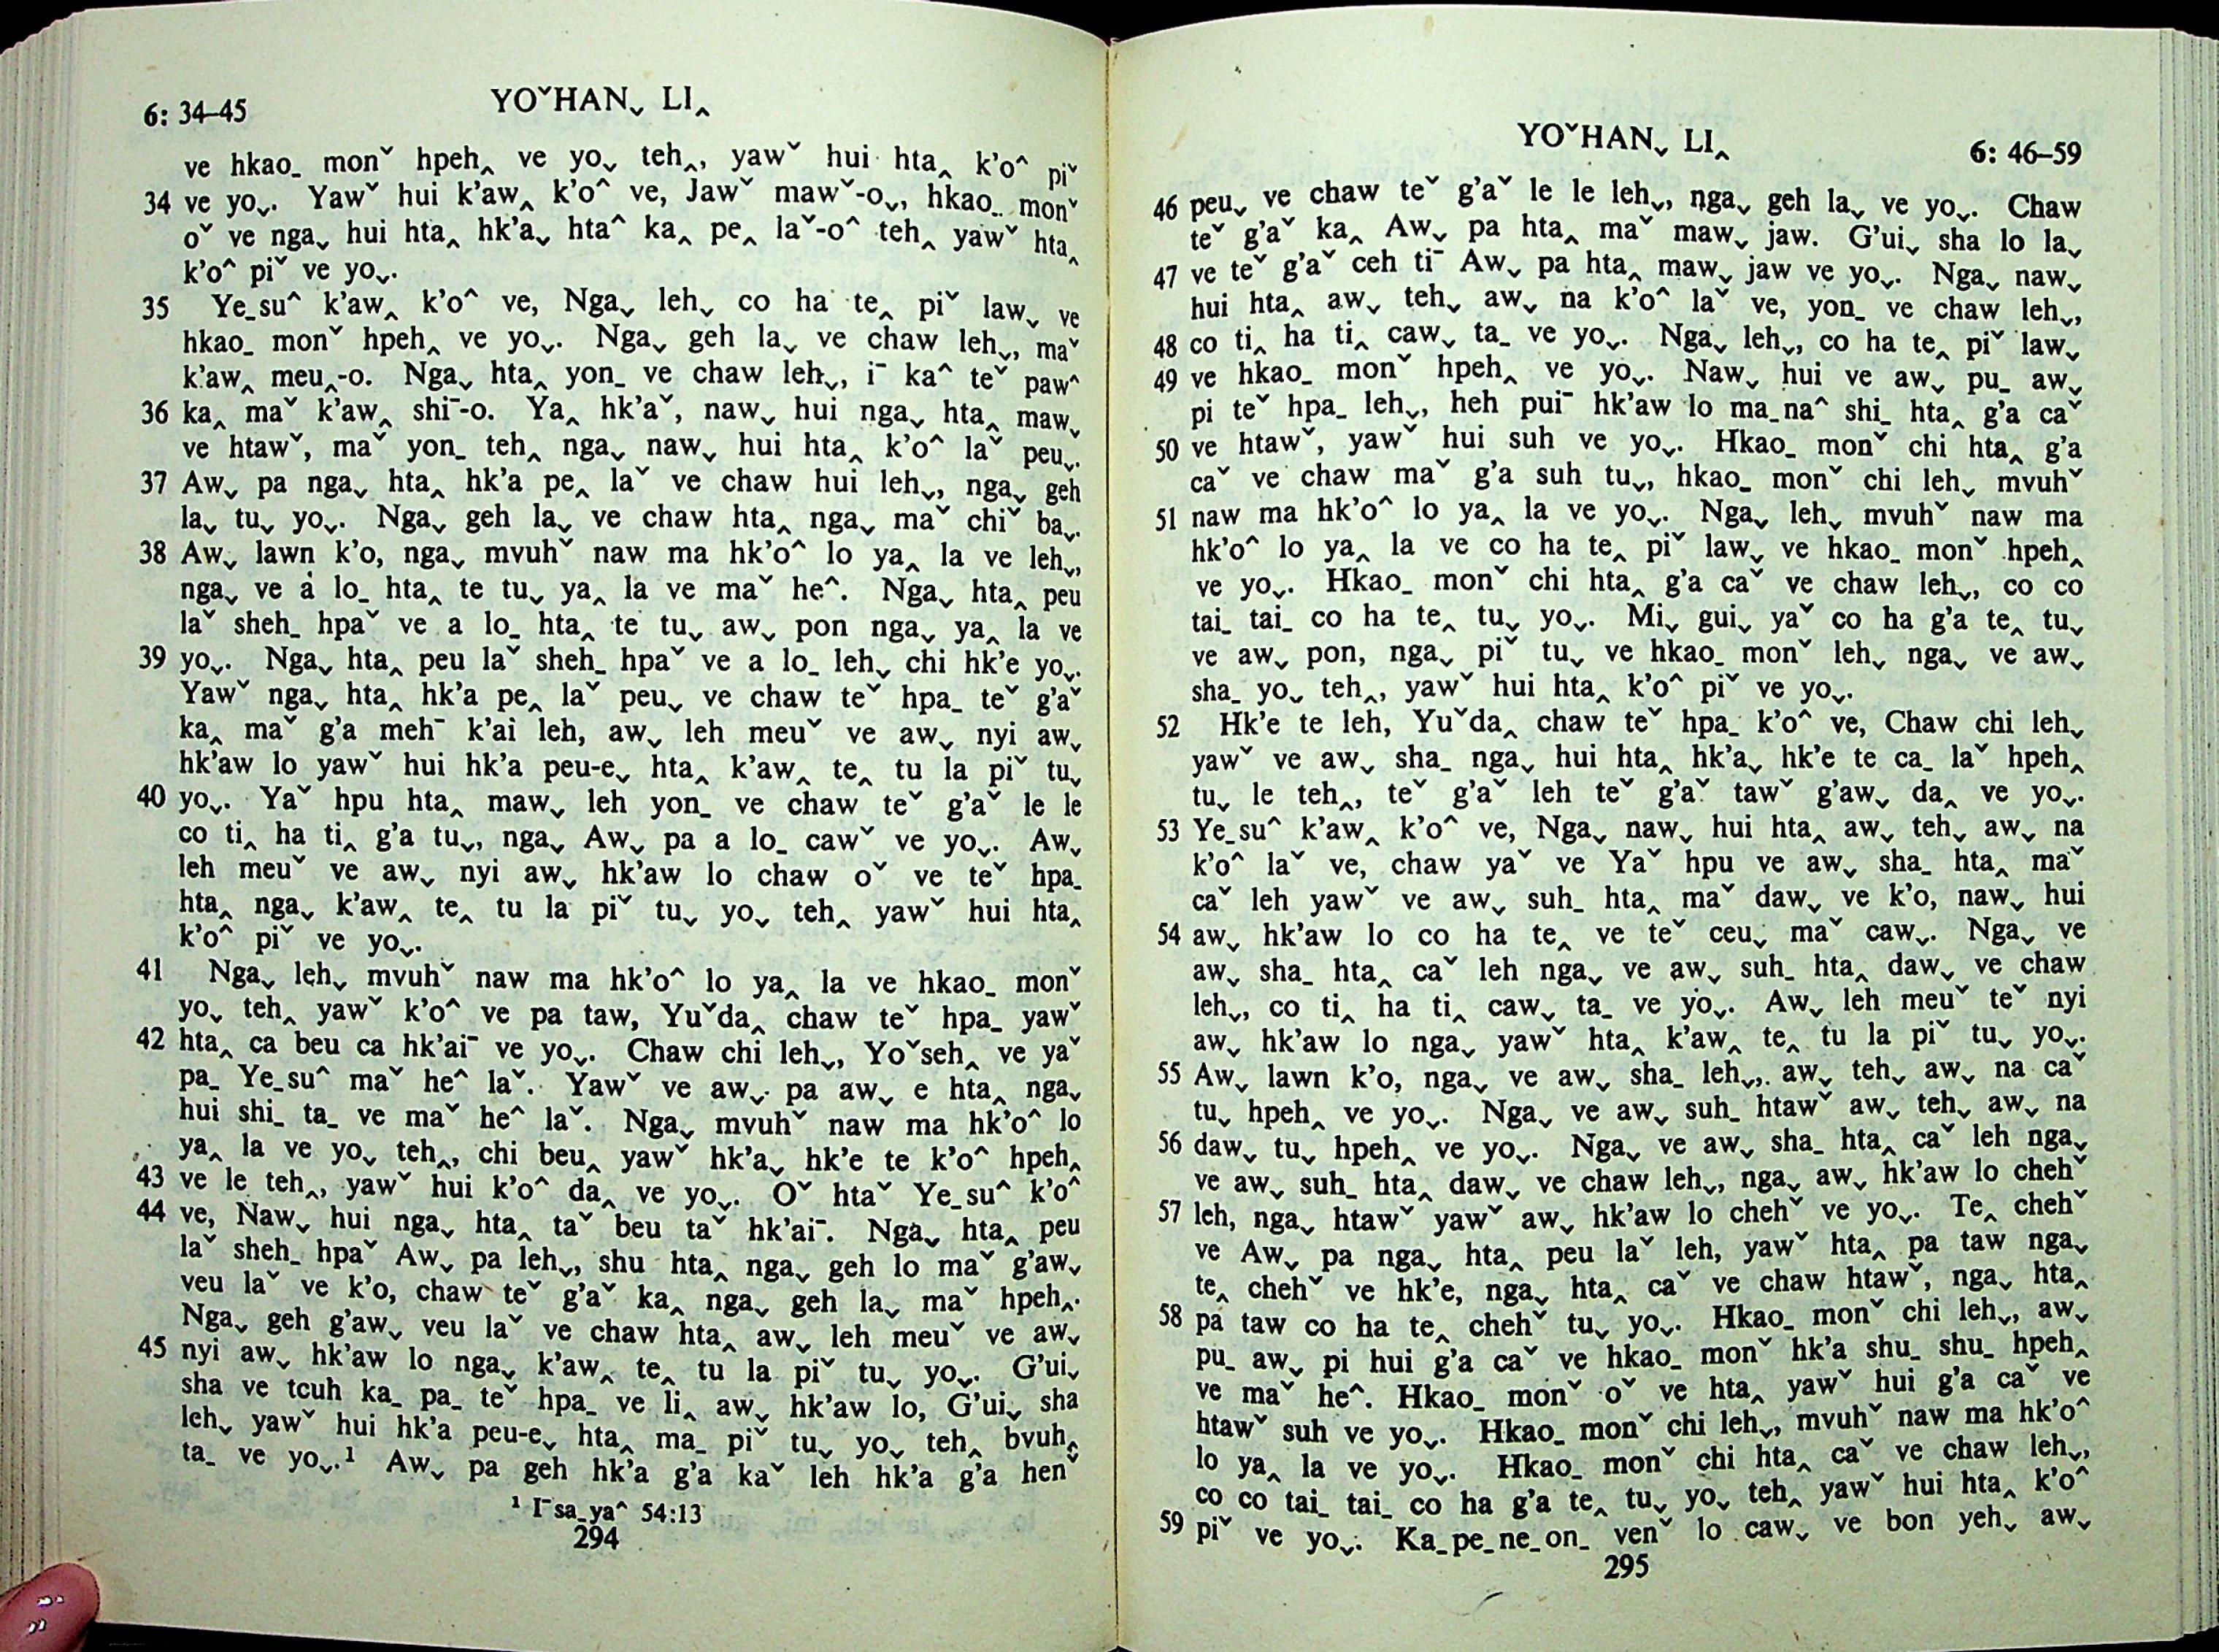 6: 34–45
YOˇHANˬ LI‸
ve hkao˗ monˇ hpeh‸ ve yoˬ teh‸, yawˇ hui hta‸ k'o^ piˇ
34 ve yoˬ. Yawˇ hui k'aw‸ k'o^ ve, Jawˇ mawˇ-oˬ, hkao˗ monˇ
oˇ ve ngaˬ hui hta‸ hk'aˬ hta^ ka‸ pe‸ laˇ-o^ teh‸ yawˇ hta‸
k'o^ piˇ ve yoˬ.
35 Ye˗su^ k'aw‸ k'o^ ve, Ngaˬ lehˬ co ha te‸ piˇ lawˬ ve
hkao˗ monˇ hpeh‸ ve yoˬ. Ngaˬ geh laˬ ve chaw lehˬ, maˇ
k'aw‸ meu‸-o. Ngaˬ hta‸ yon˗ ve chaw lehˬ, iˉ ka^ teˇ paw^
36 ka‸ maˇ k'aw‸ shiˉ-o. Ya‸ hk'aˇ, nawˬ hui ngaˬ hta‸ mawˬ
ve htawˇ, maˇ yon˗ teh‸ ngaˬ nawˬ hui hta‸ k'o^ laˇ peuˬ.
37 Awˬ pa ngaˬ hta‸ hk'a pe‸ laˇ ve chaw hui lehˬ, ngaˬ geh
laˬ tuˬ yoˬ. Ngaˬ geh laˬ ve chaw hta‸ ngaˬ maˇ chiˇ baˬ.
38 Awˬ lawn k'o, ngaˬ mvuhˇ naw ma hk'o^ lo ya‸ la ve lehˬ,
ngaˬ ve a lo˗ hta‸ te tuˬ ya‸ la ve maˇ he^. Ngaˬ hta‸ peu
laˇ sheh˗ hpaˇ ve a lo˗ hta‸ te tuˬ awˬ pon ngaˬ ya‸ la ve
39 yoˬ. Ngaˬ hta‸ peu laˇ sheh˗ hpaˇ ve a lo˗ lehˬ chi hk'e yoˬ.
Yawˇ ngaˬ hta‸ hk'a pe‸ laˇ peuˬ ve chaw teˇ hpa˗ teˇ g'aˇ
ka‸ maˇ g'a mehˉ k'ai leh, awˬ leh meuˇ ve awˬ nyi awˬ
hk'aw lo yawˇ hui hk'a peu-eˬ hta‸ k'aw‸ te‸ tu la piˇ tuˬ
40 yoˬ. Yaˇ hpu hta‸ mawˬ leh yon˗ ve chaw teˇ g'aˇ le le
co ti‸ ha ti‸ g'a tuˬ, ngaˬ Awˬ pa a lo˗ cawˇ ve yoˬ. Awˬ
leh meuˇ ve awˬ nyi awˬ hk'aw lo chaw oˇ ve teˇ hpa˗
hta‸ ngaˬ k'aw‸ te‸ tu la piˇ tuˬ yoˬ teh‸ yawˇ hui hta‸
k'o^ piˇ ve yoˬ.
41 Ngaˬ lehˬ mvuhˇ naw ma hk'o^ lo ya‸ la ve hkao˗ monˇ
yoˬ teh‸ yawˇ k'o^ ve pa taw, Yuˇda‸ chaw teˇ hpa˗ yawˇ
42 hta‸ ca beu ca hk'aiˉ ve yoˬ. Chaw chi lehˬ, Yoˇseh‸ ve yaˇ
pa˗ Ye˗su^ maˇ he^ laˇ. Yawˇ ve awˬ pa awˬ e hta‸ ngaˬ
hui shi˗ ta˗ ve maˇ he^ laˇ. Ngaˬ mvuhˇ naw ma hk'o^ lo
ya‸ la ve yoˬ teh‸, chi beu‸ yawˇ hk'aˬ hk'e te k'o^ hpeh‸
43 ve le teh‸, yawˇ hui k'o^ da‸ ve yoˬ. Oˇ htaˇ Ye˗su^ k'o^
44 ve, Nawˬ hui ngaˬ hta‸ taˇ beu taˇ hk'aiˉ. Ngaˬ hta‸ peu
laˇ sheh˗ hpaˇ Awˬ pa lehˬ, shu hta‸ ngaˬ geh lo maˇ g'awˬ
veu laˇ ve k'o, chaw teˇ g'aˇ ka‸ ngaˬ geh laˬ maˇ hpeh‸.
Ngaˬ geh g'awˬ veu laˇ ve chaw hta‸ awˬ leh meuˇ ve awˬ
45 nyi awˬ hk'aw lo ngaˬ k'aw‸ te‸ tu la piˇ tuˬ yoˬ. G'uiˬ
sha ve tcuh ka˗ pa˗ teˇ hpa˗ ve li‸ awˬ hk'aw lo, G'uiˬ sha
lehˬ yawˇ hui hk'a peu-eˬ hta‸ ma˗ piˇ tuˬ yoˬ teh‸ bvuh‸
ta˗ ve yoˬ.¹ Awˬ pa geh hk'a g'a kaˇ leh hk'a g'a henˇ
¹ Iˉsa˗ya^ 54:13
294
YOˇHANˬ LI‸
6: 46–59
46 peuˬ ve chaw teˇ g'aˇ le le lehˬ, ngaˬ geh laˬ ve yoˬ. Chaw
teˇ g'aˇ ka‸ Awˬ pa hta‸ maˇ mawˬ jaw. G'uiˬ sha lo laˬ
47 ve teˇ g'aˇ ceh tiˉ Awˬ pa hta‸ mawˬ jaw ve yoˬ. Ngaˬ nawˬ
hui hta‸ awˬ tehˬ awˬ na k'o^ laˇ ve, yon˗ ve chaw lehˬ,
48 co ti‸ ha ti‸ cawˬ ta˗ ve yoˬ. Ngaˬ lehˬ, co ha te‸ piˇ lawˬ
49 ve hkao˗ monˇ hpeh‸ ve yoˬ. Nawˬ hui ve awˬ pu˗ awˬ
pi teˇ hpa˗ lehˬ, heh puiˉ hk'aw lo ma˗na^ shi˗ hta‸ g'a caˇ
50 ve htawˇ, yawˇ hui suh ve yoˬ. Hkao˗ monˇ chi hta‸ g'a
caˇ ve chaw maˇ g'a suh tuˬ, hkao˗ monˇ chi lehˬ mvuhˇ
51 naw ma hk'o^ lo ya‸ la ve yoˬ. Ngaˬ lehˬ mvuhˇ naw ma
hk'o^ lo ya‸ la ve co ha te‸ piˇ lawˬ ve hkao˗ monˇ hpeh‸
ve yoˬ. Hkao˗ monˇ chi hta‸ g'a caˇ ve chaw lehˬ, co co
tai˗ tai˗ co ha te‸ tuˬ yoˬ. Miˬ guiˬ yaˇ co ha g'a te‸ tuˬ
ve awˬ pon, ngaˬ piˇ tuˬ ve hkao˗ monˇ lehˬ ngaˬ ve awˬ
sha˗ yoˬ teh‸, yawˇ hui hta‸ k'o^ piˇ ve yoˬ.
52 Hk'e te leh, Yuˇda‸ chaw teˇ hpa˗ k'o^ ve, Chaw chi lehˬ
yawˇ ve awˬ sha˗ ngaˬ hui hta‸ hk'aˬ hk'e te ca˗ laˇ hpeh‸
tuˬ le teh‸, teˇ g'aˇ leh teˇ g'aˇ tawˇ g'awˬ da‸ ve yoˬ.
53 Ye˗su^ k'aw‸ k'o^ ve, Ngaˬ nawˬ hui hta‸ awˬ tehˬ awˬ na
k'o^ laˇ ve, chaw yaˇ ve Yaˇ hpu ve awˬ sha˗ hta‸ maˇ
caˇ leh yawˇ ve awˬ suh˗ hta‸ maˇ dawˬ ve k'o, nawˬ hui
54 awˬ hk'aw lo co ha te‸ ve teˇ ceuˬ maˇ cawˬ. Ngaˬ ve
awˬ sha˗ hta‸ caˇ leh ngaˬ ve awˬ suh˗ hta‸ dawˬ ve chaw
lehˬ, co ti‸ ha ti‸ cawˬ ta˗ ve yoˬ. Awˬ leh meuˇ teˇ nyi
awˬ hk'aw lo ngaˬ yawˇ hta‸ k'aw‸ te‸ tu la piˇ tuˬ yoˬ.
55 Awˬ lawn k'o, ngaˬ ve awˬ sha˗ lehˬ, awˬ tehˬ awˬ na caˇ
tuˬ hpeh‸ ve yoˬ. Ngaˬ ve awˬ suh˗ htawˇ awˬ tehˬ awˬ na
56 dawˬ tuˬ hpeh‸ ve yoˬ. Ngaˬ ve awˬ sha˗ hta‸ caˇ leh ngaˬ
ve awˬ suh˗ hta‸ dawˬ ve chaw lehˬ, ngaˬ awˬ hk'aw lo chehˇ
57 leh, ngaˬ htawˇ yawˇ awˬ hk'aw lo chehˇ ve yoˬ. Te‸ chehˇ
ve Awˬ pa ngaˬ hta‸ peu laˇ leh, yawˇ hta‸ pa taw ngaˬ
te‸ chehˇ ve hk'e, ngaˬ hta‸ caˇ ve chaw htawˇ, ngaˬ hta‸
58 pa taw co ha te‸ chehˇ tuˬ yoˬ. Hkao˗ monˇ chi lehˬ, awˬ
pu˗ awˬ pi hui g'a caˇ ve hkao˗ monˇ hk'a shu˗ shu˗ hpeh‸
ve maˇ he^. Hkao˗ monˇ oˇ ve hta‸ yawˇ hui g'a caˇ ve
htawˇ suh ve yoˬ. Hkao˗ monˇ chi lehˬ, mvuhˇ naw ma hk'o^
lo ya‸ la ve yoˬ. Hkao˗ monˇ chi hta‸ caˇ ve chaw lehˬ,
co co tai˗ tai˗ co ha g'a te‸ tuˬ yoˬ teh‸ yawˇ hui hta‸ k'o^
59 piˇ ve yoˬ. Ka˗pe˗ne˗on˗ venˇ lo cawˬ ve bon yehˬ awˬ
295